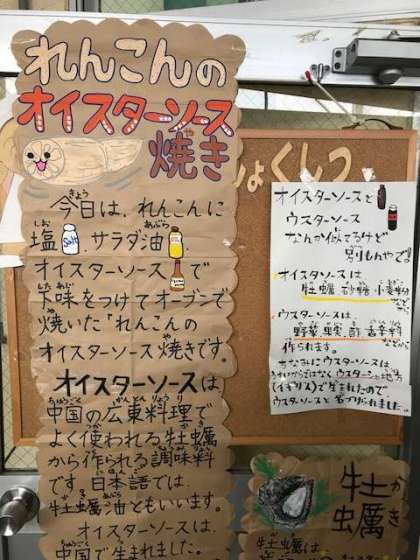 れんこんの
オイスターソース
焼き
や
しょくしつ
今日は、れんこんに
きょう
塩、サラダ油、
しお
あぶら
Salt
オイスターソースで
下味をつけてオーブンで
したあじ
焼いた「れんこんの
や
オイスターソース焼き」です。
や
オイスターソースは
中国の広東料理で
ちゅうごく
かんとんりょうり
よく使われる牡蠣
つか
かき
から作られる調味料
つく
ちょうみりょう
です。日本語では、
にほんご
牡蠣油ともいいます。
オイスターソースは
中国で生まれました。
ちゅうごく
う
オイスターソースと
ウスターソース
なんか似てるけど
別もんやで!
オイスターソースは
牡蠣 砂糖 小麦粉
ウスターソースは
野菜 果実 酢 香辛料
などから
作られます。
ちなみにウスターソースは
(イギリス)で生まれたので
ウスターソースと名づけられました。
牡
蠣
かき
牡蠣は